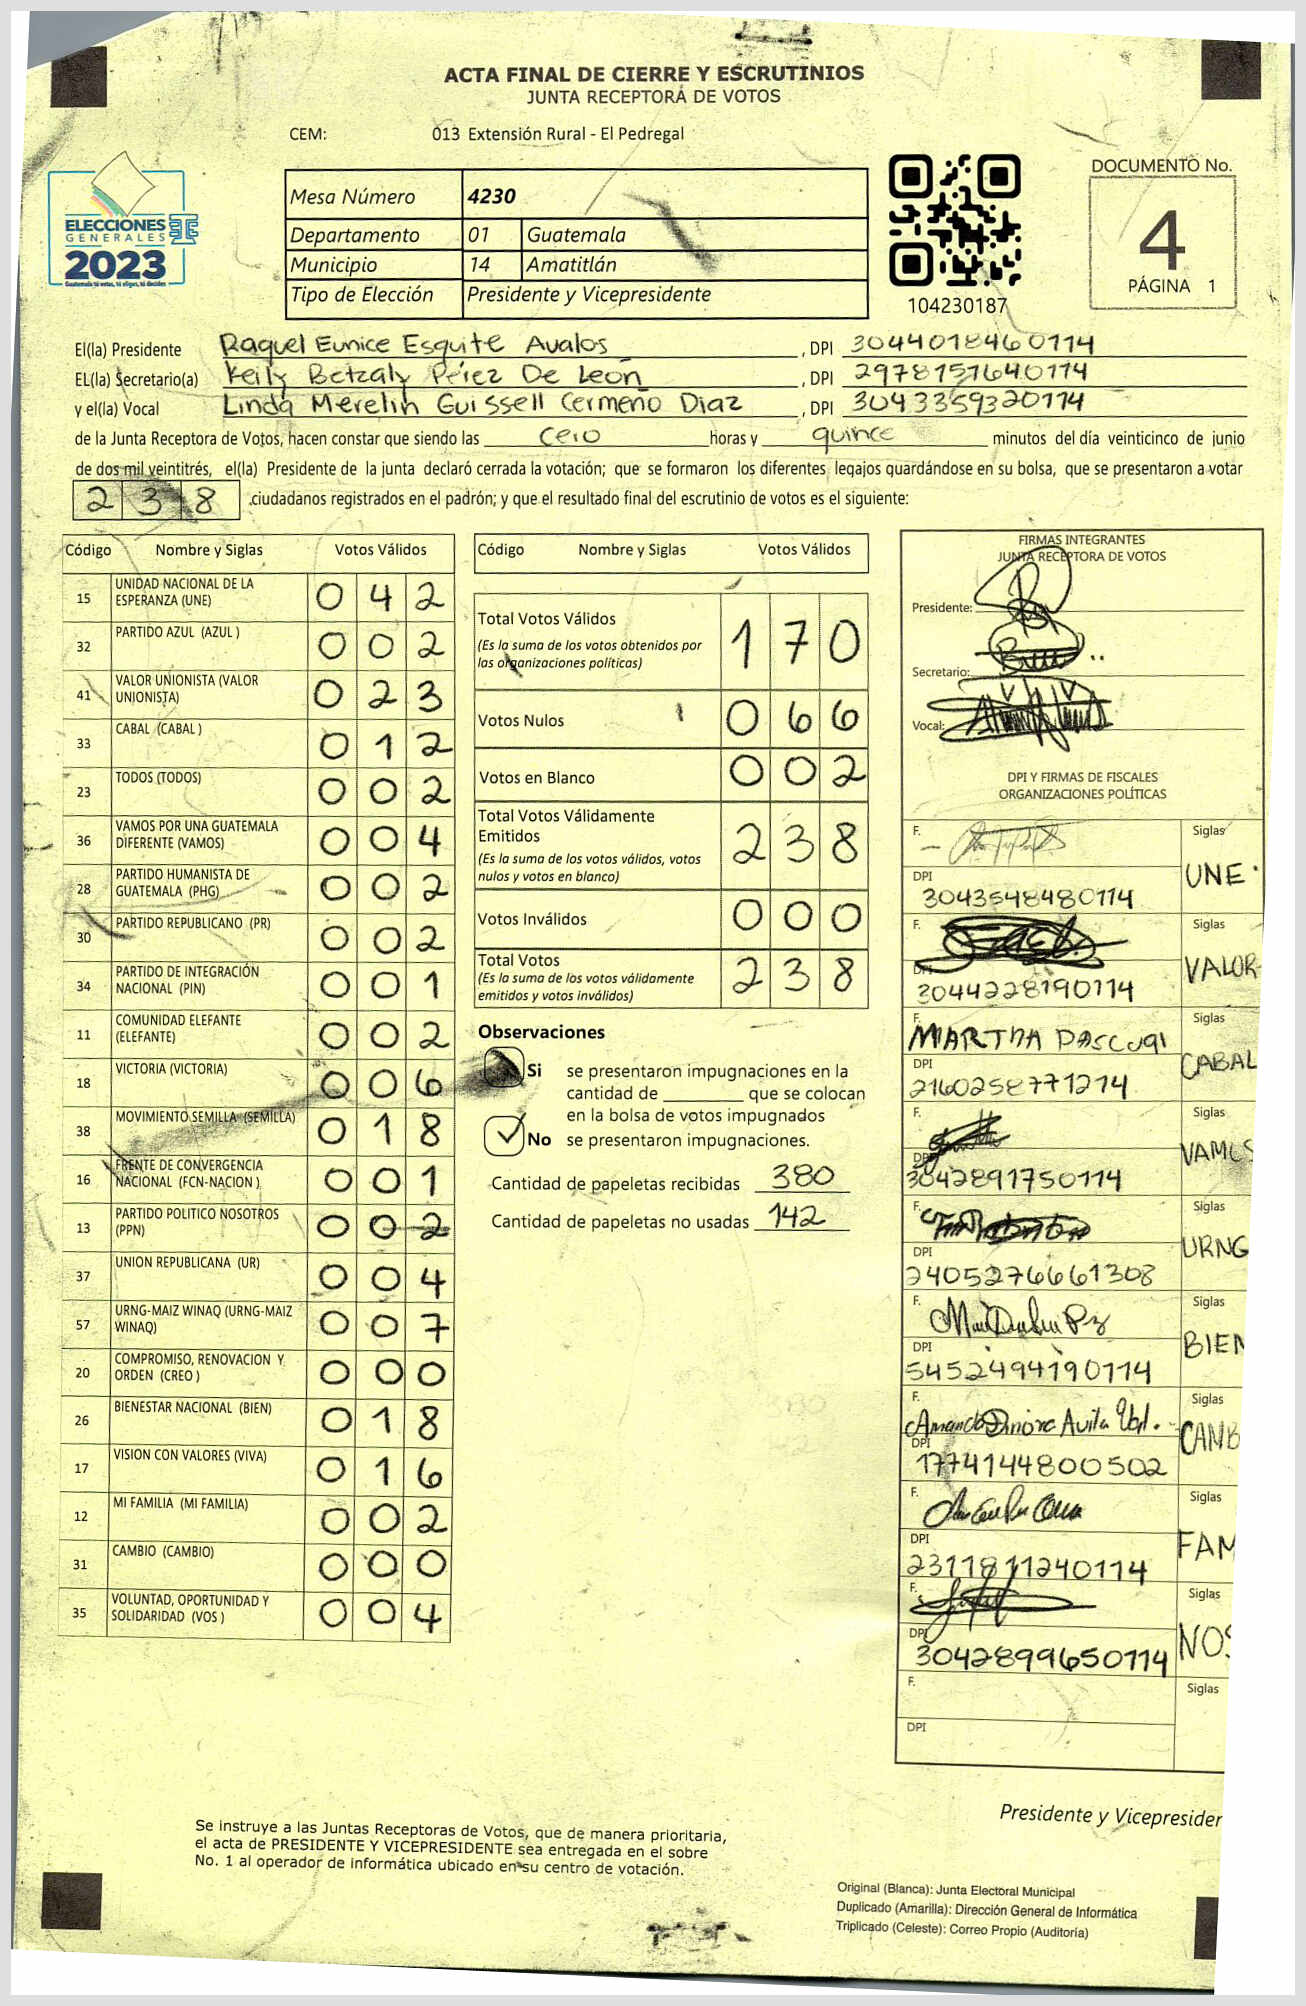 ACTA FINAL DE CIERRE Y ESCRUTINIOS
JUNTA RECEPTORA DE VOTOS
CEM: 013 Extensión Rural - El Pedregal
ELECCIONES
GENERALES
2023
Guatemala tú votas, tú eliges, tú decides
Mesa Número 4230
Departamento 01 Guatemala
Municipio 14 Amatitlán
Tipo de Elección Presidente y Vicepresidente
104230187
DOCUMENTO No.
4
PÁGINA 1
El(la) Presidente Raquel Eunice Esquite Avalos , DPI 3044018460114
EL(la) Secretario(a) Keily Betzaly Pérez De Leon , DPI 2978151640114
y el(la) Vocal Linda Merelin Guissell Cermeño Diaz , DPI 3043359320114
de la Junta Receptora de Votos, hacen constar que siendo las cero horas y quince minutos del día veinticinco de junio
de dos mil veintitrés, el(la) Presidente de la junta declaró cerrada la votación; que se formaron los diferentes legajos guardándose en su bolsa, que se presentaron a votar
238 ciudadanos registrados en el padrón; y que el resultado final del escrutinio de votos es el siguiente:
Código Nombre y Siglas Votos Válidos
15 UNIDAD NACIONAL DE LA ESPERANZA (UNE) 042
32 PARTIDO AZUL (AZUL ) 002
41 VALOR UNIONISTA (VALOR UNIONISTA) 023
33 CABAL (CABAL ) 012
23 TODOS (TODOS) 002
36 VAMOS POR UNA GUATEMALA DIFERENTE (VAMOS) 004
28 PARTIDO HUMANISTA DE GUATEMALA (PHG) 002
30 PARTIDO REPUBLICANO (PR) 002
34 PARTIDO DE INTEGRACIÓN NACIONAL (PIN) 001
11 COMUNIDAD ELEFANTE (ELEFANTE) 002
18 VICTORIA (VICTORIA) 006
38 MOVIMIENTO SEMILLA (SEMILLA) 018
16 FRENTE DE CONVERGENCIA NACIONAL (FCN-NACION ) 001
13 PARTIDO POLITICO NOSOTROS (PPN) 002
37 UNION REPUBLICANA (UR) 004
57 URNG-MAIZ WINAQ (URNG-MAIZ WINAQ) 007
20 COMPROMISO, RENOVACION Y ORDEN (CREO ) 000
26 BIENESTAR NACIONAL (BIEN) 018
17 VISION CON VALORES (VIVA) 016
12 MI FAMILIA (MI FAMILIA) 002
31 CAMBIO (CAMBIO) 000
35 VOLUNTAD, OPORTUNIDAD Y SOLIDARIDAD (VOS ) 004
Código Nombre y Siglas Votos Válidos
Total Votos Válidos 170
(Es la suma de los votos obtenidos por
las organizaciones políticas)
Votos Nulos 066
Votos en Blanco 002
Total Votos Válidamente
Emitidos 238
(Es la suma de los votos válidos, votos
nulos y votos en blanco)
Votos Inválidos 000
Total Votos 238
(Es la suma de los votos válidamente
emitidos y votos inválidos)
Observaciones
Si se presentaron impugnaciones en la
cantidad de ________ que se colocan
en la bolsa de votos impugnados
No se presentaron impugnaciones.
Cantidad de papeletas recibidas 380
Cantidad de papeletas no usadas 142
FIRMAS INTEGRANTES
JUNTA RECEPTORA DE VOTOS
Presidente:
Secretario:
Vocal:
DPI Y FIRMAS DE FISCALES
ORGANIZACIONES POLÍTICAS
F. Siglas
UNE
DPI
3043548480114
F. Siglas
VALOR
DPI
3044228190114
F. Siglas
MARTHA PASCUAl
CABAL
DPI
2160258771214
F. Siglas
VAMOS
DPI
3042891750114
F. Siglas
URNG
DPI
2405276661308
F. Siglas
BIEN
DPI
5452494190114
F. Siglas
CANB
DPI
1774144800502
F. Siglas
FAM
DPI
2311811240114
F. Siglas
NOS
DPI
3042899650114
F. Siglas
DPI
Presidente y Vicepresiden
Se instruye a las Juntas Receptoras de Votos, que de manera prioritaria,
el acta de PRESIDENTE Y VICEPRESIDENTE sea entregada en el sobre
No. 1 al operador de informática ubicado en su centro de votación.
Original (Blanca): Junta Electoral Municipal
Duplicado (Amarilla): Dirección General de Informática
Triplicado (Celeste): Correo Propio (Auditoría)